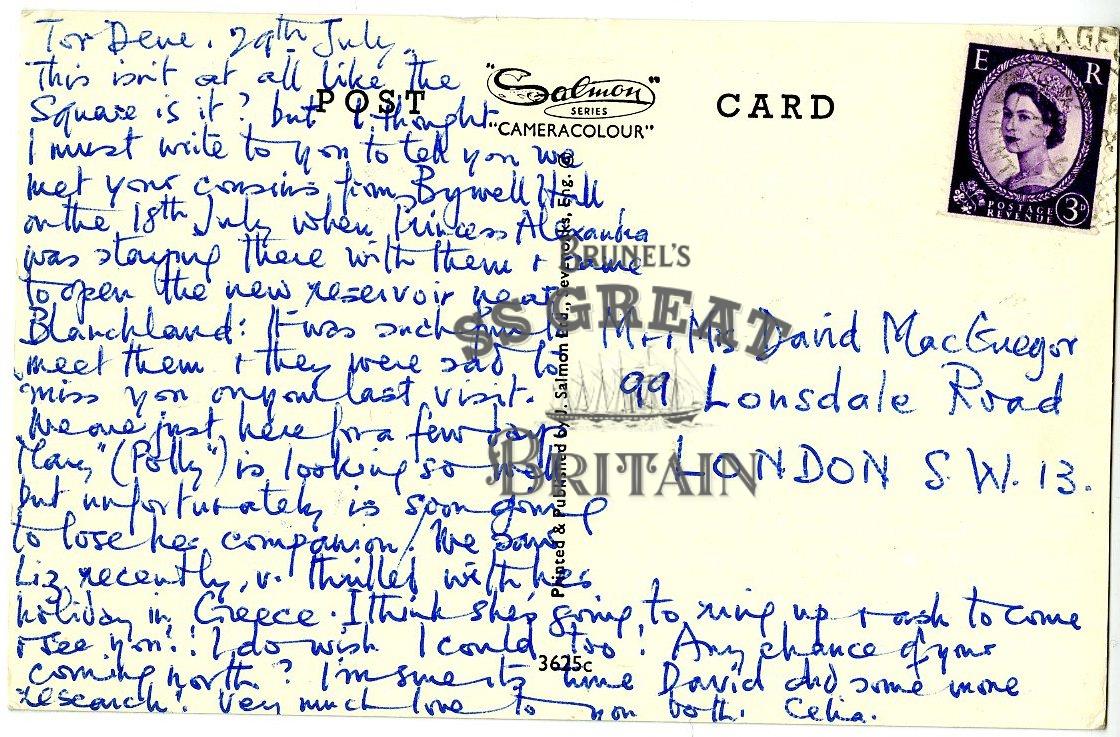 Tor Dene. 29th July.
This isn't at all like the
Square is it? but I thought
I must write to you to tell you we
met your cousins from Bywell Hall
on the 18th July when Princess Alexandra
was staying there with them + came
to open the new reservoir near
Blanchland: It was such fun to
meet them + they were sad to
miss you on your last visit.
We are just here for a few days
"Mary" ("Polly") is looking so well
but unfortunately is soon going
to lose her companion. We saw
Liz recently, v. thrilled with her
holiday in Greece. I think she's going to ring up + ask to come
+ see you!! I do wish I could too! Any chance of your
coming north? I'm sure its time David did some more
research! Very much love to you both. Celia.
POST CARD
"Salmon"
SERIES
"CAMERACOLOUR"
E R
POSTAGE
REVENUE
3D
Mr + Mrs David MacGregor
99 Lonsdale Road
LONDON S.W. 13.
Printed & Published by J. Salmon Ltd., Sevenoaks, Eng. ©
3625c
BRUNEL'S
SS GREAT
BRITAIN